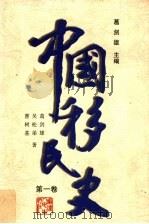 葛剑雄 主编
中國移民史
葛剑雄
吴松弟
曹树基 著
第一卷